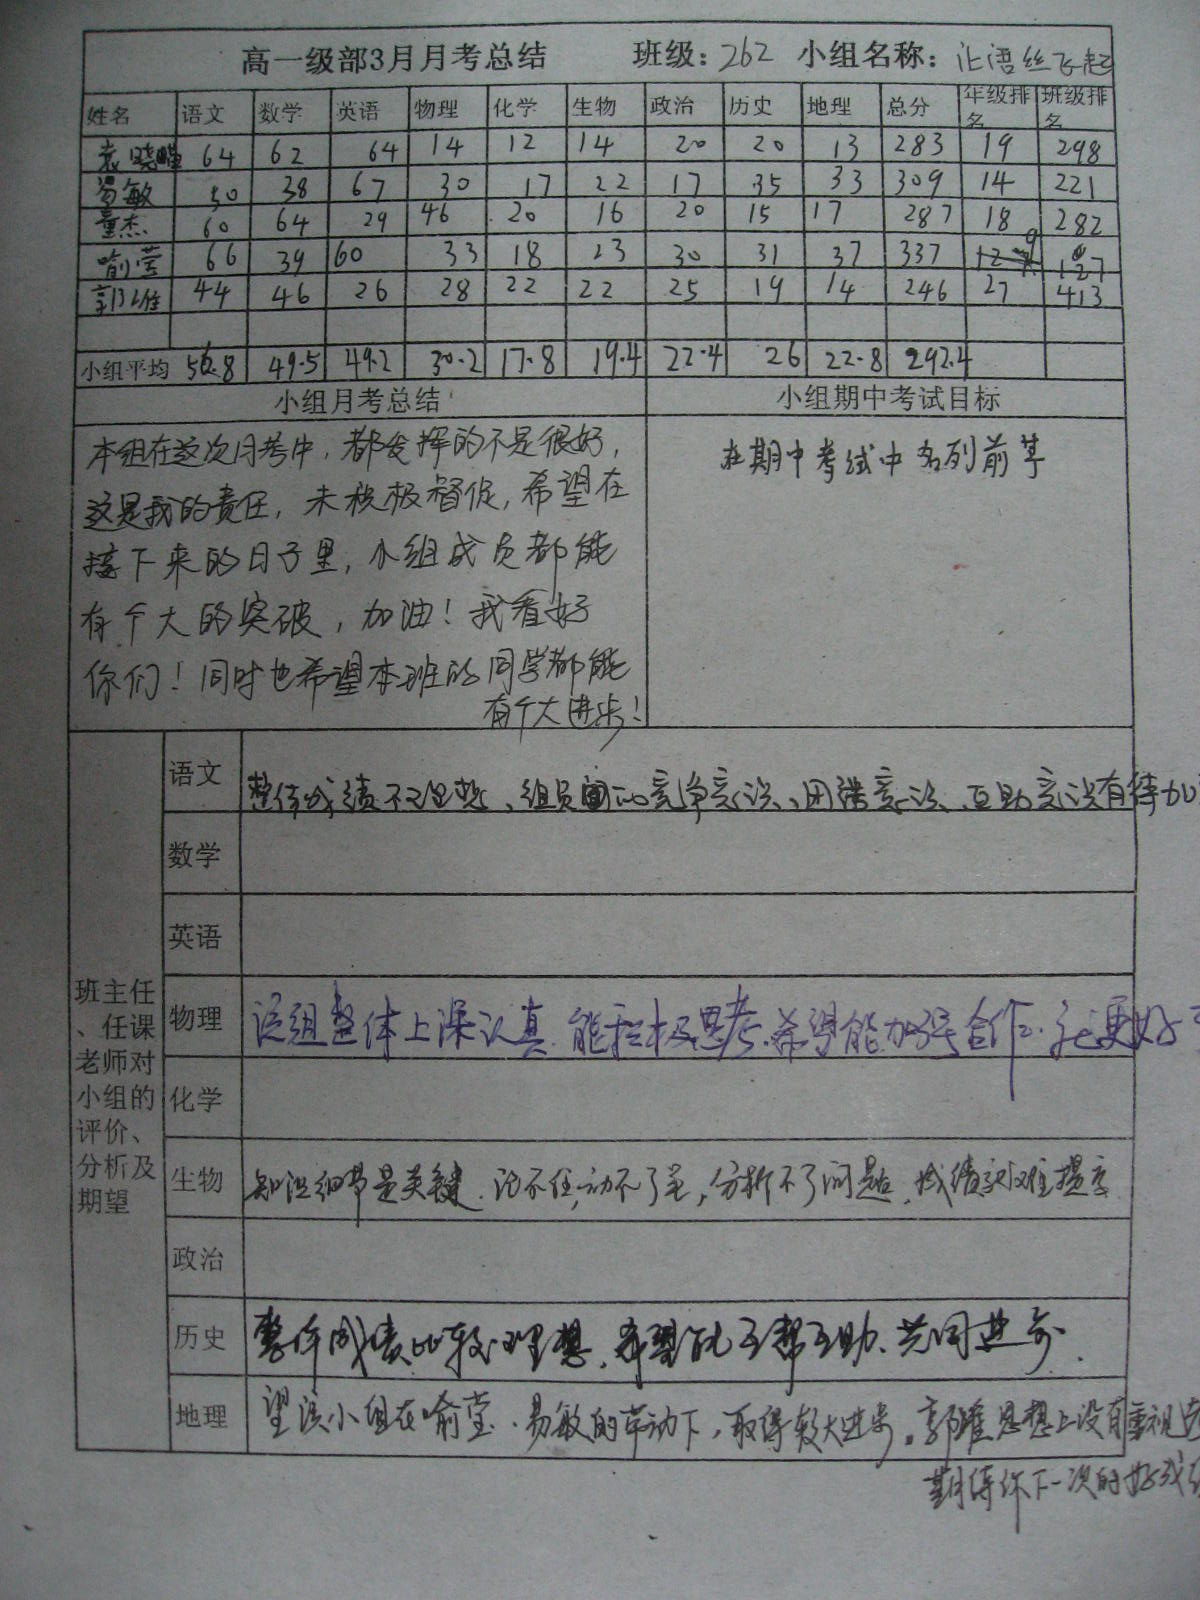 高一级部3月月考总结 班级：262 小组名称：让语丝飞起
姓名 语文 数学 英语 物理 化学 生物 政治 历史 地理 总分 年级排名 班级排名
袁晓 64 62 64 14 12 14 20 20 13 283 19 298
易敏 50 38 67 30 17 22 17 35 33 309 14 221
董杰 60 64 29 46 20 16 20 15 17 287 18 282
喻莹 66 39 60 33 18 23 30 31 37 337 9 127
郭雄 44 46 26 28 22 22 25 19 14 246 27 413
小组平均 56.8 49.5 49.2 30.2 17.8 19.4 22.4 26 22.8 292.4
小组月考总结 小组期中考试目标
本组在这次月考中，都发挥的不是很好，
这是我的责任，未积极督促，希望在
接下来的日子里，小组成员都能
有个大的突破，加油！我看好
你们！同时也希望本班的同学都能
有个大进步！
在期中考试中名列前茅
班主任、任课老师对小组的评价、分析及期望
语文 整体成绩不理想、组员间的竞争意识、团结意识、互助意识有待加
数学
英语
物理 该组整体上课认真，能积极思考，希望能加强合作，更好
化学
生物 知识细节是关键，记不住，动不了笔，分析不了问题，成绩就难提高
政治
历史 整体成绩比较理想，希望能互帮互助、共同进步．
地理 望该小组在喻莹、易敏的带动下，取得较大进步。郭雄思想上没有重视
期待你下一次的好成